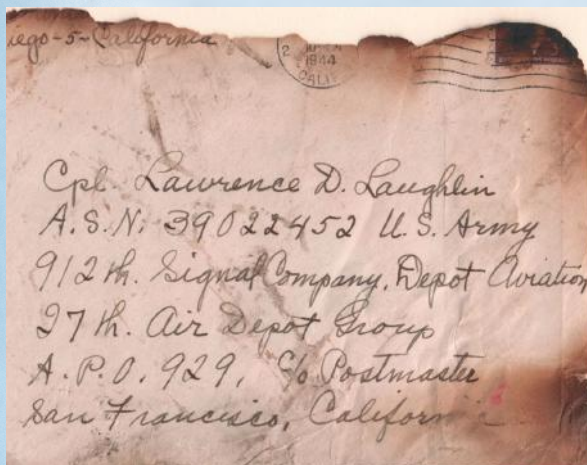 iego-5-California
2
1944
CALIF
Cpl. Lawrence D. Laughlin
A.S.N. 39022452 U.S. Army
912th. Signal Company, Depot Aviation
27th. Air Depot Group
A.P.O. 929, c/o Postmaster
San Francisco, California